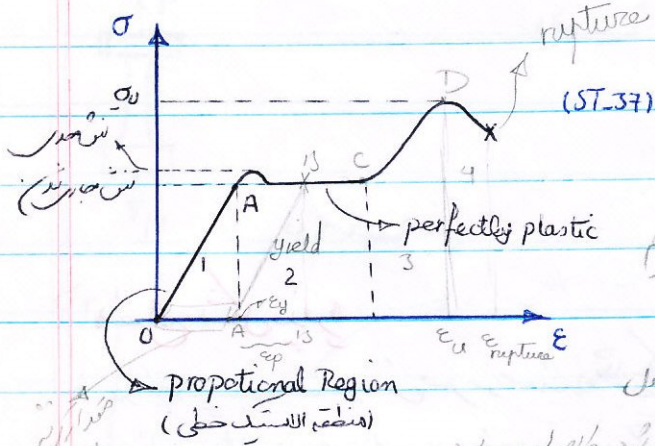 σ
rupture
σu
D
(ST_37)
تنش حدی
تنش جاری شدن
B
C
4
A
perfectly plastic
yield
1
2
3
εy
O
A
B
εp
εu
ε rupture
ε
propotional Region
(منطقه الاستیک خطی)